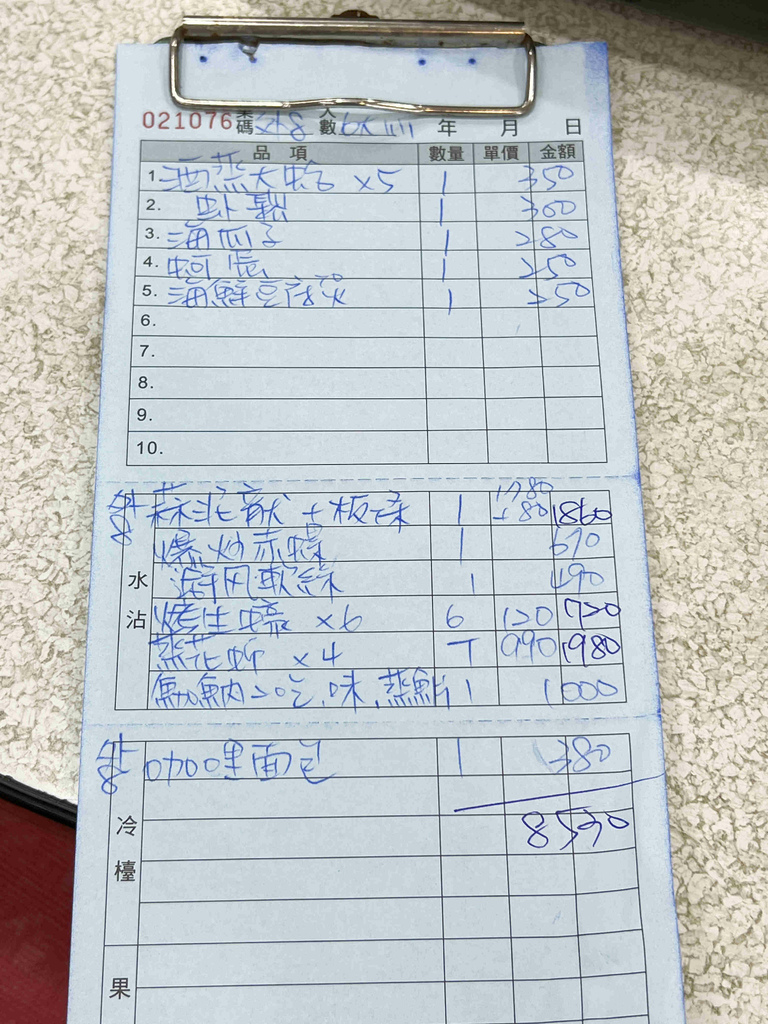 021076 桌碼 外8 人數 6大 年 月 日
品項 數量 單價 金額
1. 酒蒸大蛤 x5 1 350
2. 卦製 1 360
3. 海瓜子 1 280
4. 蚵 1 250
5. 海鮮豆腐煲 1 250
6.
7.
8.
9.
10.
外8 蒜 + 板條 1 1780 +80 1860
爆炒赤 1 690
避风 1 490
水沾 烤生蠔 x6 6 120 720
蒸花蚧 x4 T 990 1980
二吃. 味.蒸 1 1000
外8 咖哩面包 1 380
8590
冷檯
果